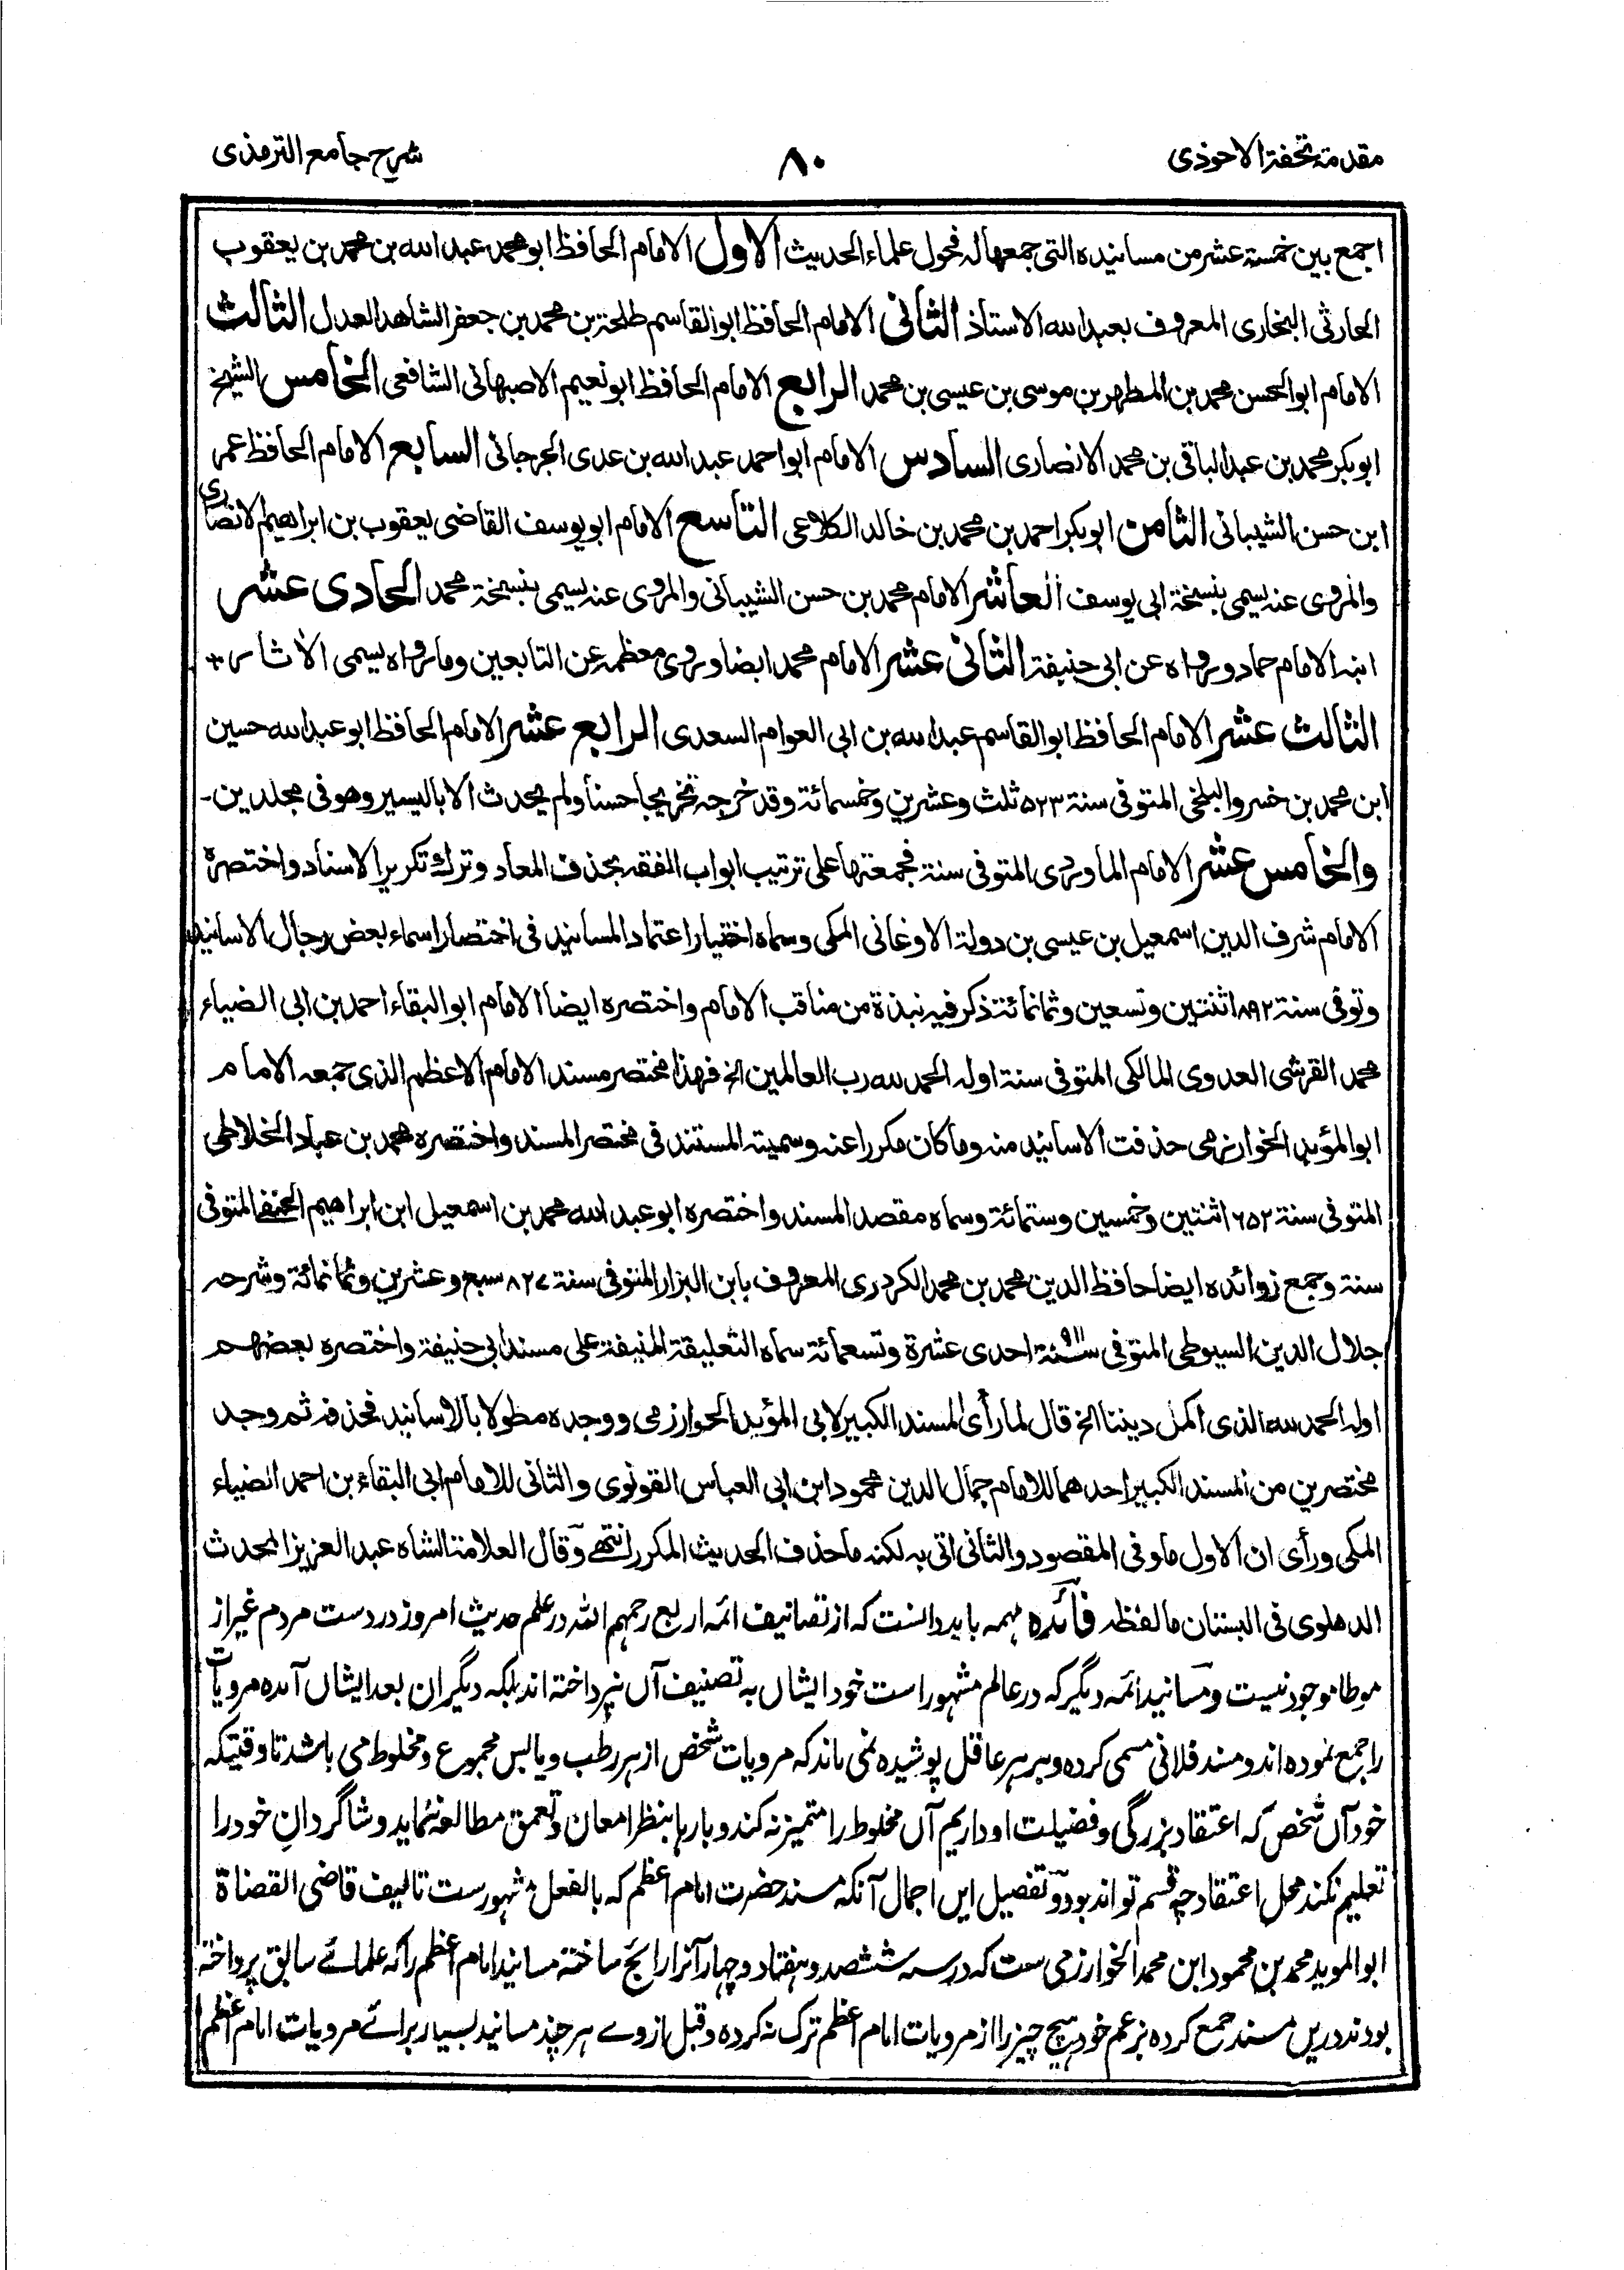 مقدمة تحفة الاحوذى
٨٠
شرح جامع الترمذى
اجمع بين خمسة عشر من مسانيده التى جمعها له فحول علماء الحديث الاول الامام الحافظ ابو محمد عبد الله بن محمد بن يعقوب
الحارثى البخارى المعروف بعبد الله الاستاذ الثانى الامام الحافظ ابو القاسم طلحة بن محمد بن جعفر الشاهد العدل الثالث
الامام ابو الحسن محمد بن المطهر بن موسى بن عيسى بن محمد الرابع الامام الحافظ ابو نعيم الاصبهانى الشافعى الخامس الشيخ
ابو بكر محمد بن عبد الباقى بن محمد الانصارى السادس الامام ابو احمد عبد الله بن عدى الجرجانى السابع الامام الحافظ عمر
ابن حسن الشيبانى الثامن ابو بكر احمد بن محمد بن خالد الكلاعى التاسع الامام ابو يوسف القاضى يعقوب بن ابراهيم الانصارى
والمروى عنه يسمى بنسخة ابى يوسف العاشر الامام محمد بن حسن الشيبانى والمروى عنه يسمى بنسخة محمد الحادى عشر
ابنه الامام حماد ورواه عن ابى حنيفة الثانى عشر الامام محمد ايضا وروى معظمه عن التابعين وما رواه يسمى الاثار +
الثالث عشر الامام الحافظ ابو القاسم عبد الله بن ابى العوام السعدى الرابع عشر الامام الحافظ ابو عبد الله حسين
ابن محمد بن خسرو البلخى المتوفى سنة ٥٢٣ ثلث وعشرين وخمسمائة وقد خرجه تخريجا حسنا ولم يحدث الا باليسير وهو فى مجلدين-
والخامس عشر الامام الماوردى المتوفى سنة فجمعتها على ترتيب ابواب الفقه بحذف المعاد وترك تكرير الاسناد واختصره
الامام شرف الدين اسمعيل بن عيسى بن دولة الاوغانى المكى وسماه اختيار اعتماد المسانيد فى اختصار اسماء بعض رجال الاسانيد
وتوفى سنة ٨٩٢ اثنتين وتسعين وثمانمائة ذكر فيه نبذة من مناقب الامام واختصره ايضا الامام ابو البقاء احمد بن ابى الضياء
محمد القرشى العدوى المالكى المتوفى سنة اوله الحمد لله رب العالمين الخ فهذا مختصر مسند الامام الاعظم الذى جمعه الامام
ابو المؤيد الخوارزمى حذفت الاسانيد منه وما كان مكررا عنه وسميته المستند فى مختصر المسند واختصره محمد بن عباد الخلاطى
المتوفى سنة ٦٥٢ اثنتين وخمسين وستمائة وسماه مقصد المسند واختصره ابو عبد الله محمد بن اسمعيل ابن ابراهيم الحنفى المتوفى
سنة وجمع زوائده ايضا حافظ الدين محمد بن محمد الكردرى المعروف بابن البزار المتوفى سنة ٨٢٧ سبع وعشرين وثمانمائة وشرحه
جلال الدين السيوطى المتوفى سنة ٩١١ احدى عشرة وتسعمائة سماه التعليقة المنيفة على مسند ابى حنيفة واختصره بعضهم
اوله الحمد لله الذى اكمل ديننا الخ قال لما رأى المسند الكبير لابى المؤيد الخوارزمى ووجده مطولا بالاسانيد فحذفه ثم وجد
مختصرين من المسند الكبير احدهما للامام جمال الدين محمود ابن ابى العباس القونوى والثانى للامام ابى البقاء بن احمد الضياء
المكى ورأى ان الاول ما وفى المقصود والثانى اتى به لكنه ما حذف الحديث المكرر انتهى وقال العلامة الشاه عبد العزيز المحدث
الدهلوى فى البستان ما لفظه فائده مهمه بايد دانست كه از تصانيف ائمه اربع رحمهم الله در علم حديث امروز در دست مردم غير از
موطا موجود نيست و مسانيد ائمه ديگر كه در عالم مشهور است خود ايشاں به تصنيف آں نپرداخته اند بلكه ديگران بعد ايشاں آمده مرويات
را جمع نموده اند و مسند فلانى مسمى كرده و بر هر عاقل پوشيده نمى ماند كه مرويات شخص از هر رطب و يابس مجموع و مخلوط مى باشد تا وقتيكه
خود آں شخص كه اعتقاد بزرگى و فضيلت او داريم آں مخلوط را متميز نه كند و بارها بنظر امعان و تعمق مطالعه ننمايد و شاگردانِ خود را
تعليم نكند محل اعتقاد چه قسم تواند بود و تفصيل ايں اجمال آنكه مسند حضرت امام اعظم كه بالفعل مشهورست تاليف قاضى القضاة
ابو المويد محمد بن محمود ابن محمد الخوارزمى ست كه در سنه ششصد و هفتاد و چهار آنرا رائج ساخته مسانيد امام اعظم را كه علمائے سابق پرداخته
بودند دريں مسند جمع كرده بزعم خود هيچ چيز را از مرويات امام اعظم ترك نه كرده و قبل از وے هر چند مسانيد بسيار برائے مرويات امام اعظم